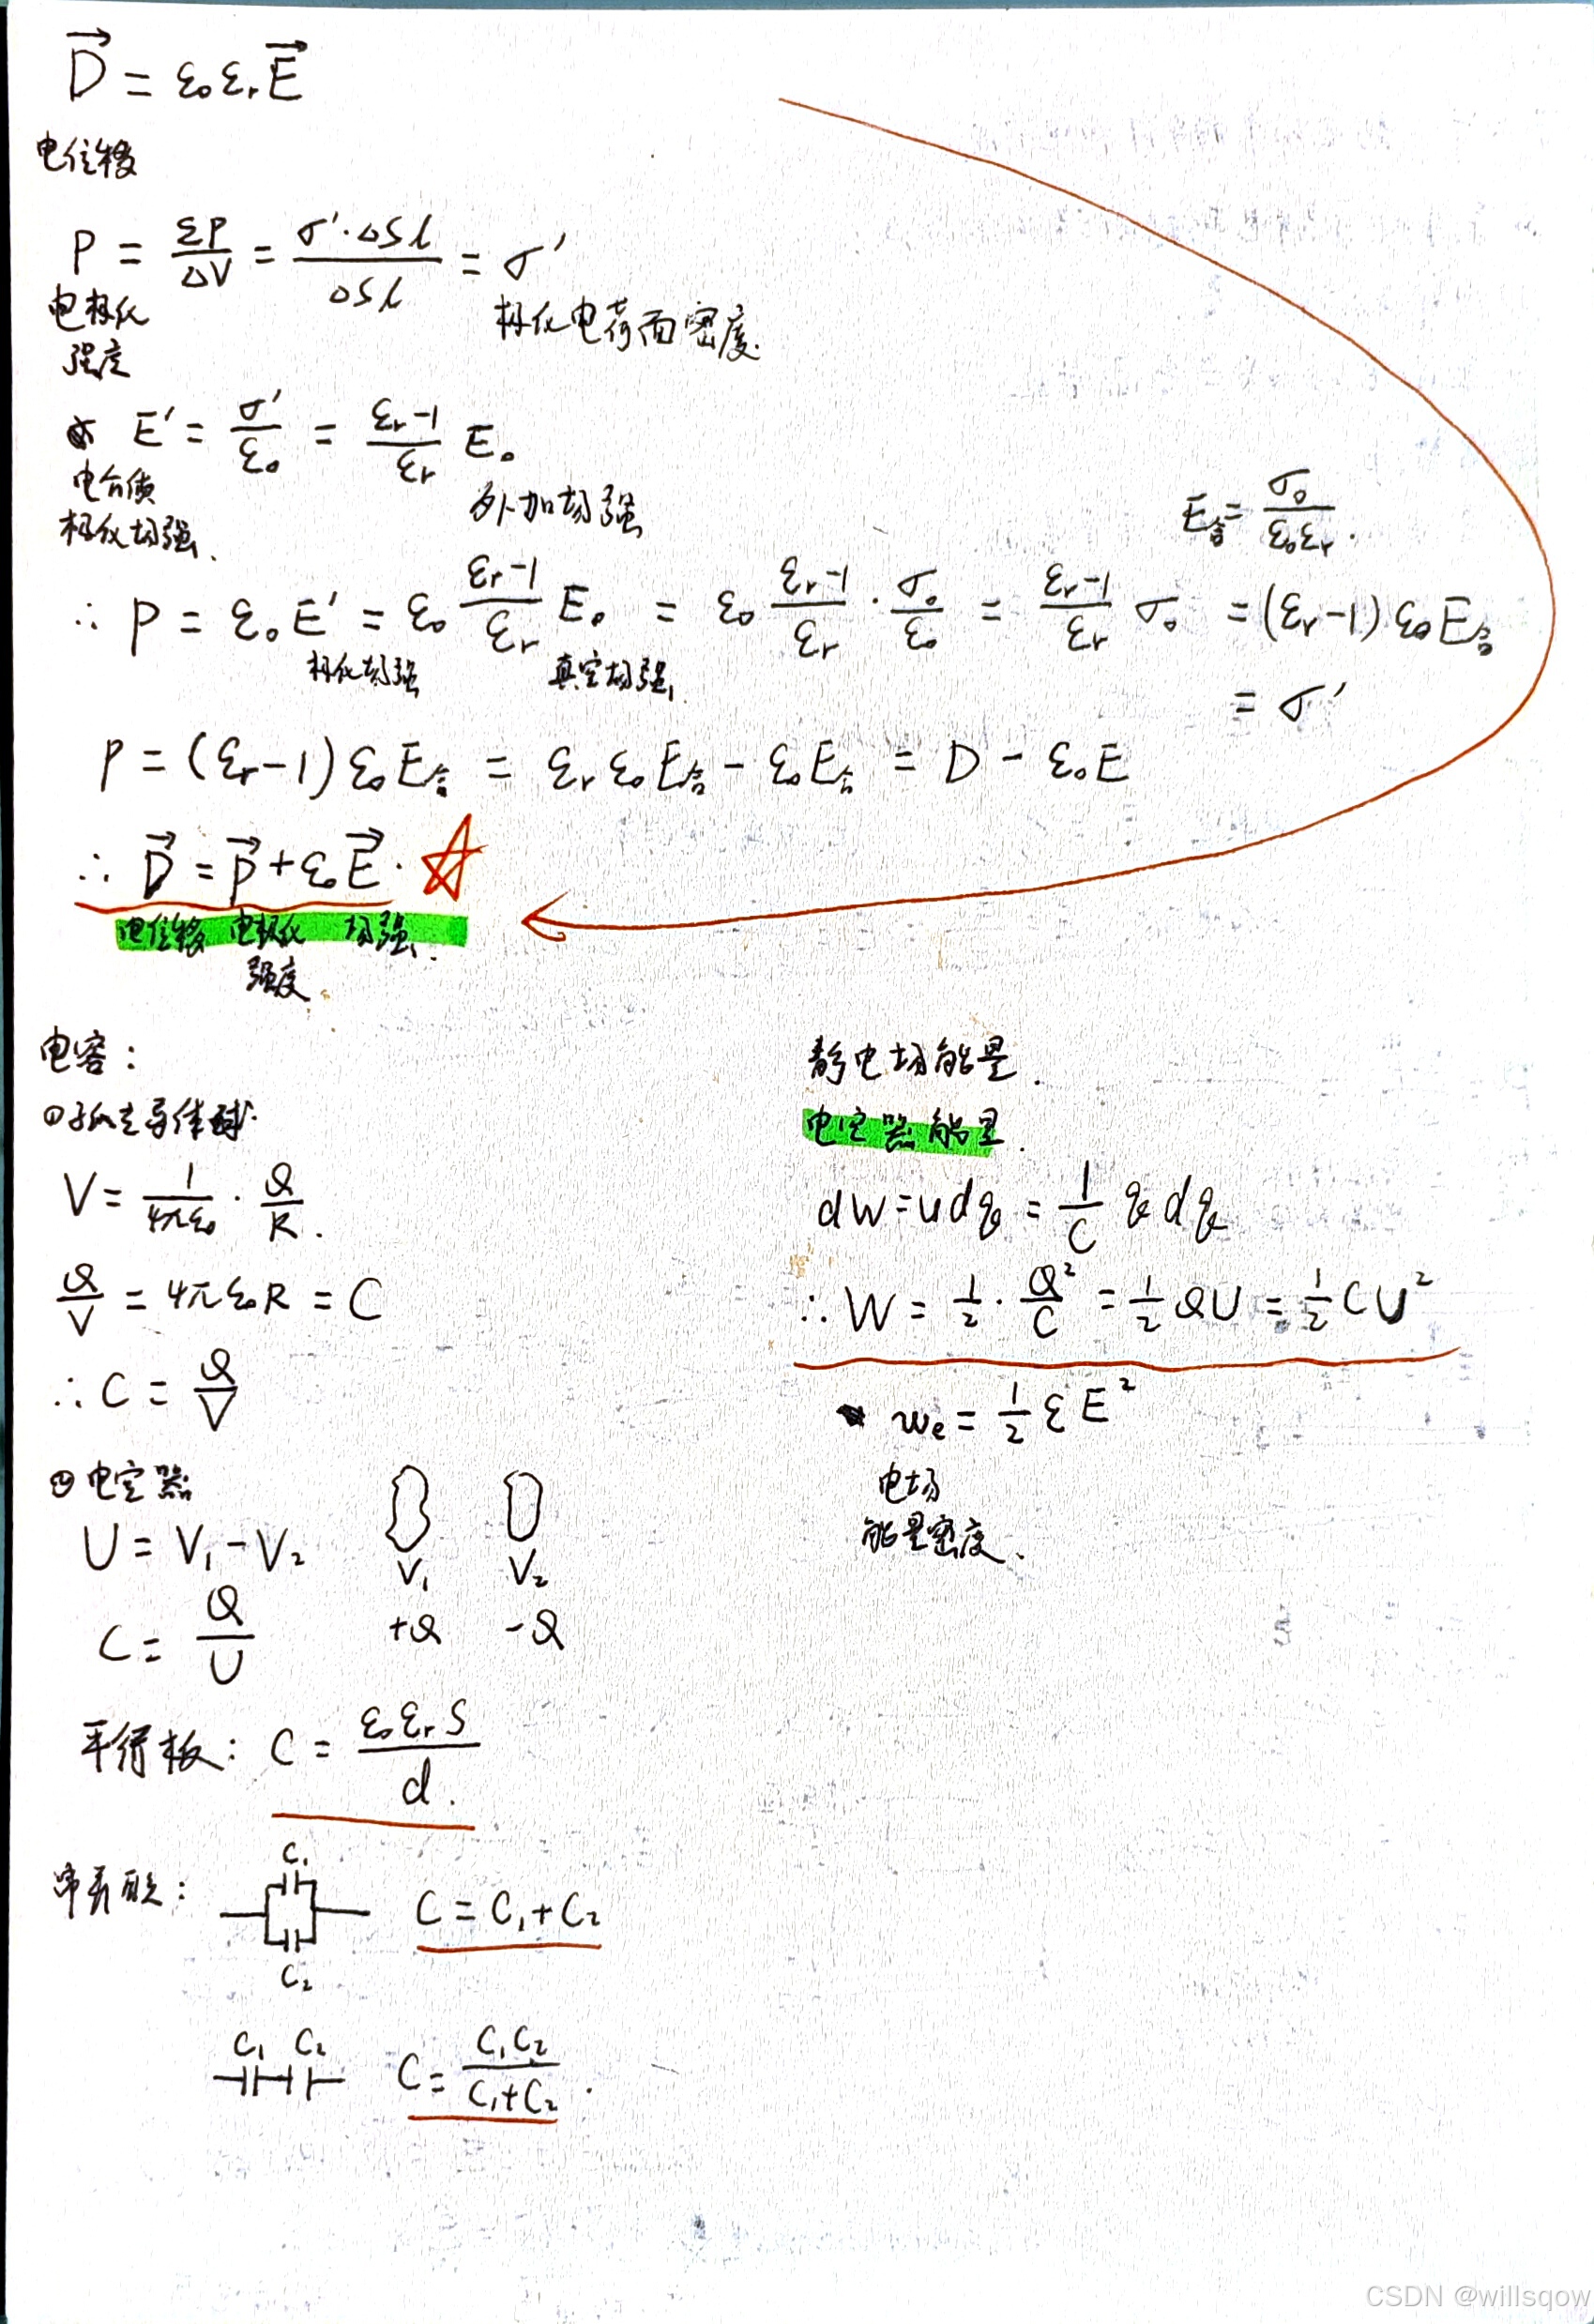 D⃗ = ε₀εᵣE⃗
电位移
P = ΣP/ΔV = σ'·ΔSl/ΔSl = σ'
电极化强度
极化电荷面密度.
E' = σ'/ε₀ = (εᵣ-1)/εᵣ E₀
电介质极化场强.
外加场强
E合 = σ₀/ε₀εᵣ.
∴ P = ε₀E' = ε₀ (εᵣ-1)/εᵣ E₀ = ε₀ (εᵣ-1)/εᵣ · σ₀/ε₀ = (εᵣ-1)/εᵣ σ₀ = (εᵣ-1)ε₀E合
极化场强 真空场强
= σ'
P = (εᵣ-1)ε₀E合 = εᵣε₀E合 - ε₀E合 = D - ε₀E
∴ D⃗ = P⃗ + ε₀E⃗.
电位移 电极化强度 场强.
电容:
①孤立导体球.
V = 1/4πε₀ · Q/R.
Q/V = 4πε₀R = C
∴ C = Q/V
②电容器
U = V₁ - V₂
V₁ V₂
+Q -Q
C = Q/U
平行板: C = ε₀εᵣS/d.
串并联:
C₁
C₂
C = C₁ + C₂
C₁ C₂
C = C₁C₂/C₁+C₂.
静电场能量.
电容器能量.
dW = udq = 1/C q dq
∴ W = 1/2 · Q²/C = 1/2 QU = 1/2 CU²
wₑ = 1/2 εE²
电场
能量密度.
CSDN @willsqow